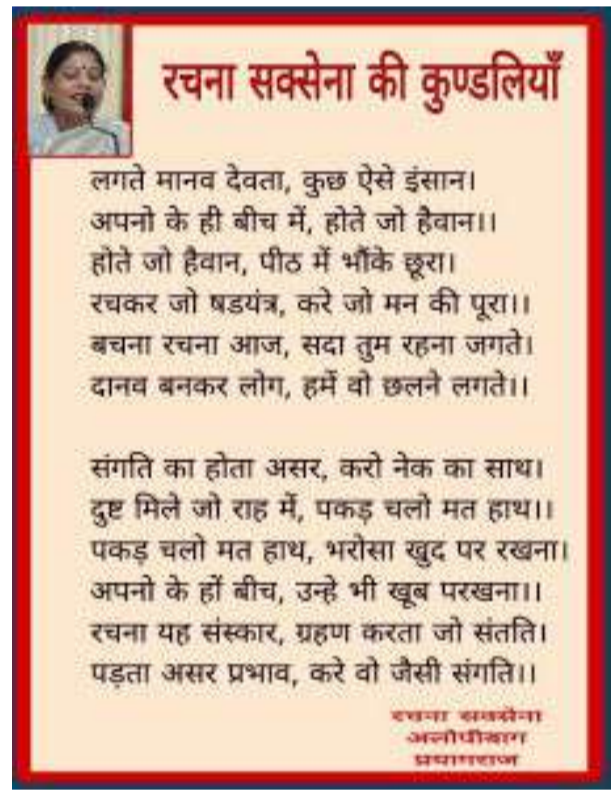 रचना सक्सेना की कुण्डलियाँ
लगते मानव देवता, कुछ ऐसे इंसान।
अपनो के ही बीच में, होते जो हैवान।।
होते जो हैवान, पीठ में भौंके छूरा।
रचकर जो षडयंत्र, करे जो मन की पूरा।।
बचना रचना आज, सदा तुम रहना जगते।
दानव बनकर लोग, हमें वो छलने लगते।।
संगति का होता असर, करो नेक का साथ।
दुष्ट मिले जो राह में, पकड़ चलो मत हाथ।।
पकड़ चलो मत हाथ, भरोसा खुद पर रखना।
अपनो के हों बीच, उन्हे भी खूब परखना।।
रचना यह संस्कार, ग्रहण करता जो संतति।
पड़ता असर प्रभाव, करे वो जैसी संगति।।
रचना सक्सेना
अलोपीबाग
प्रयागराज